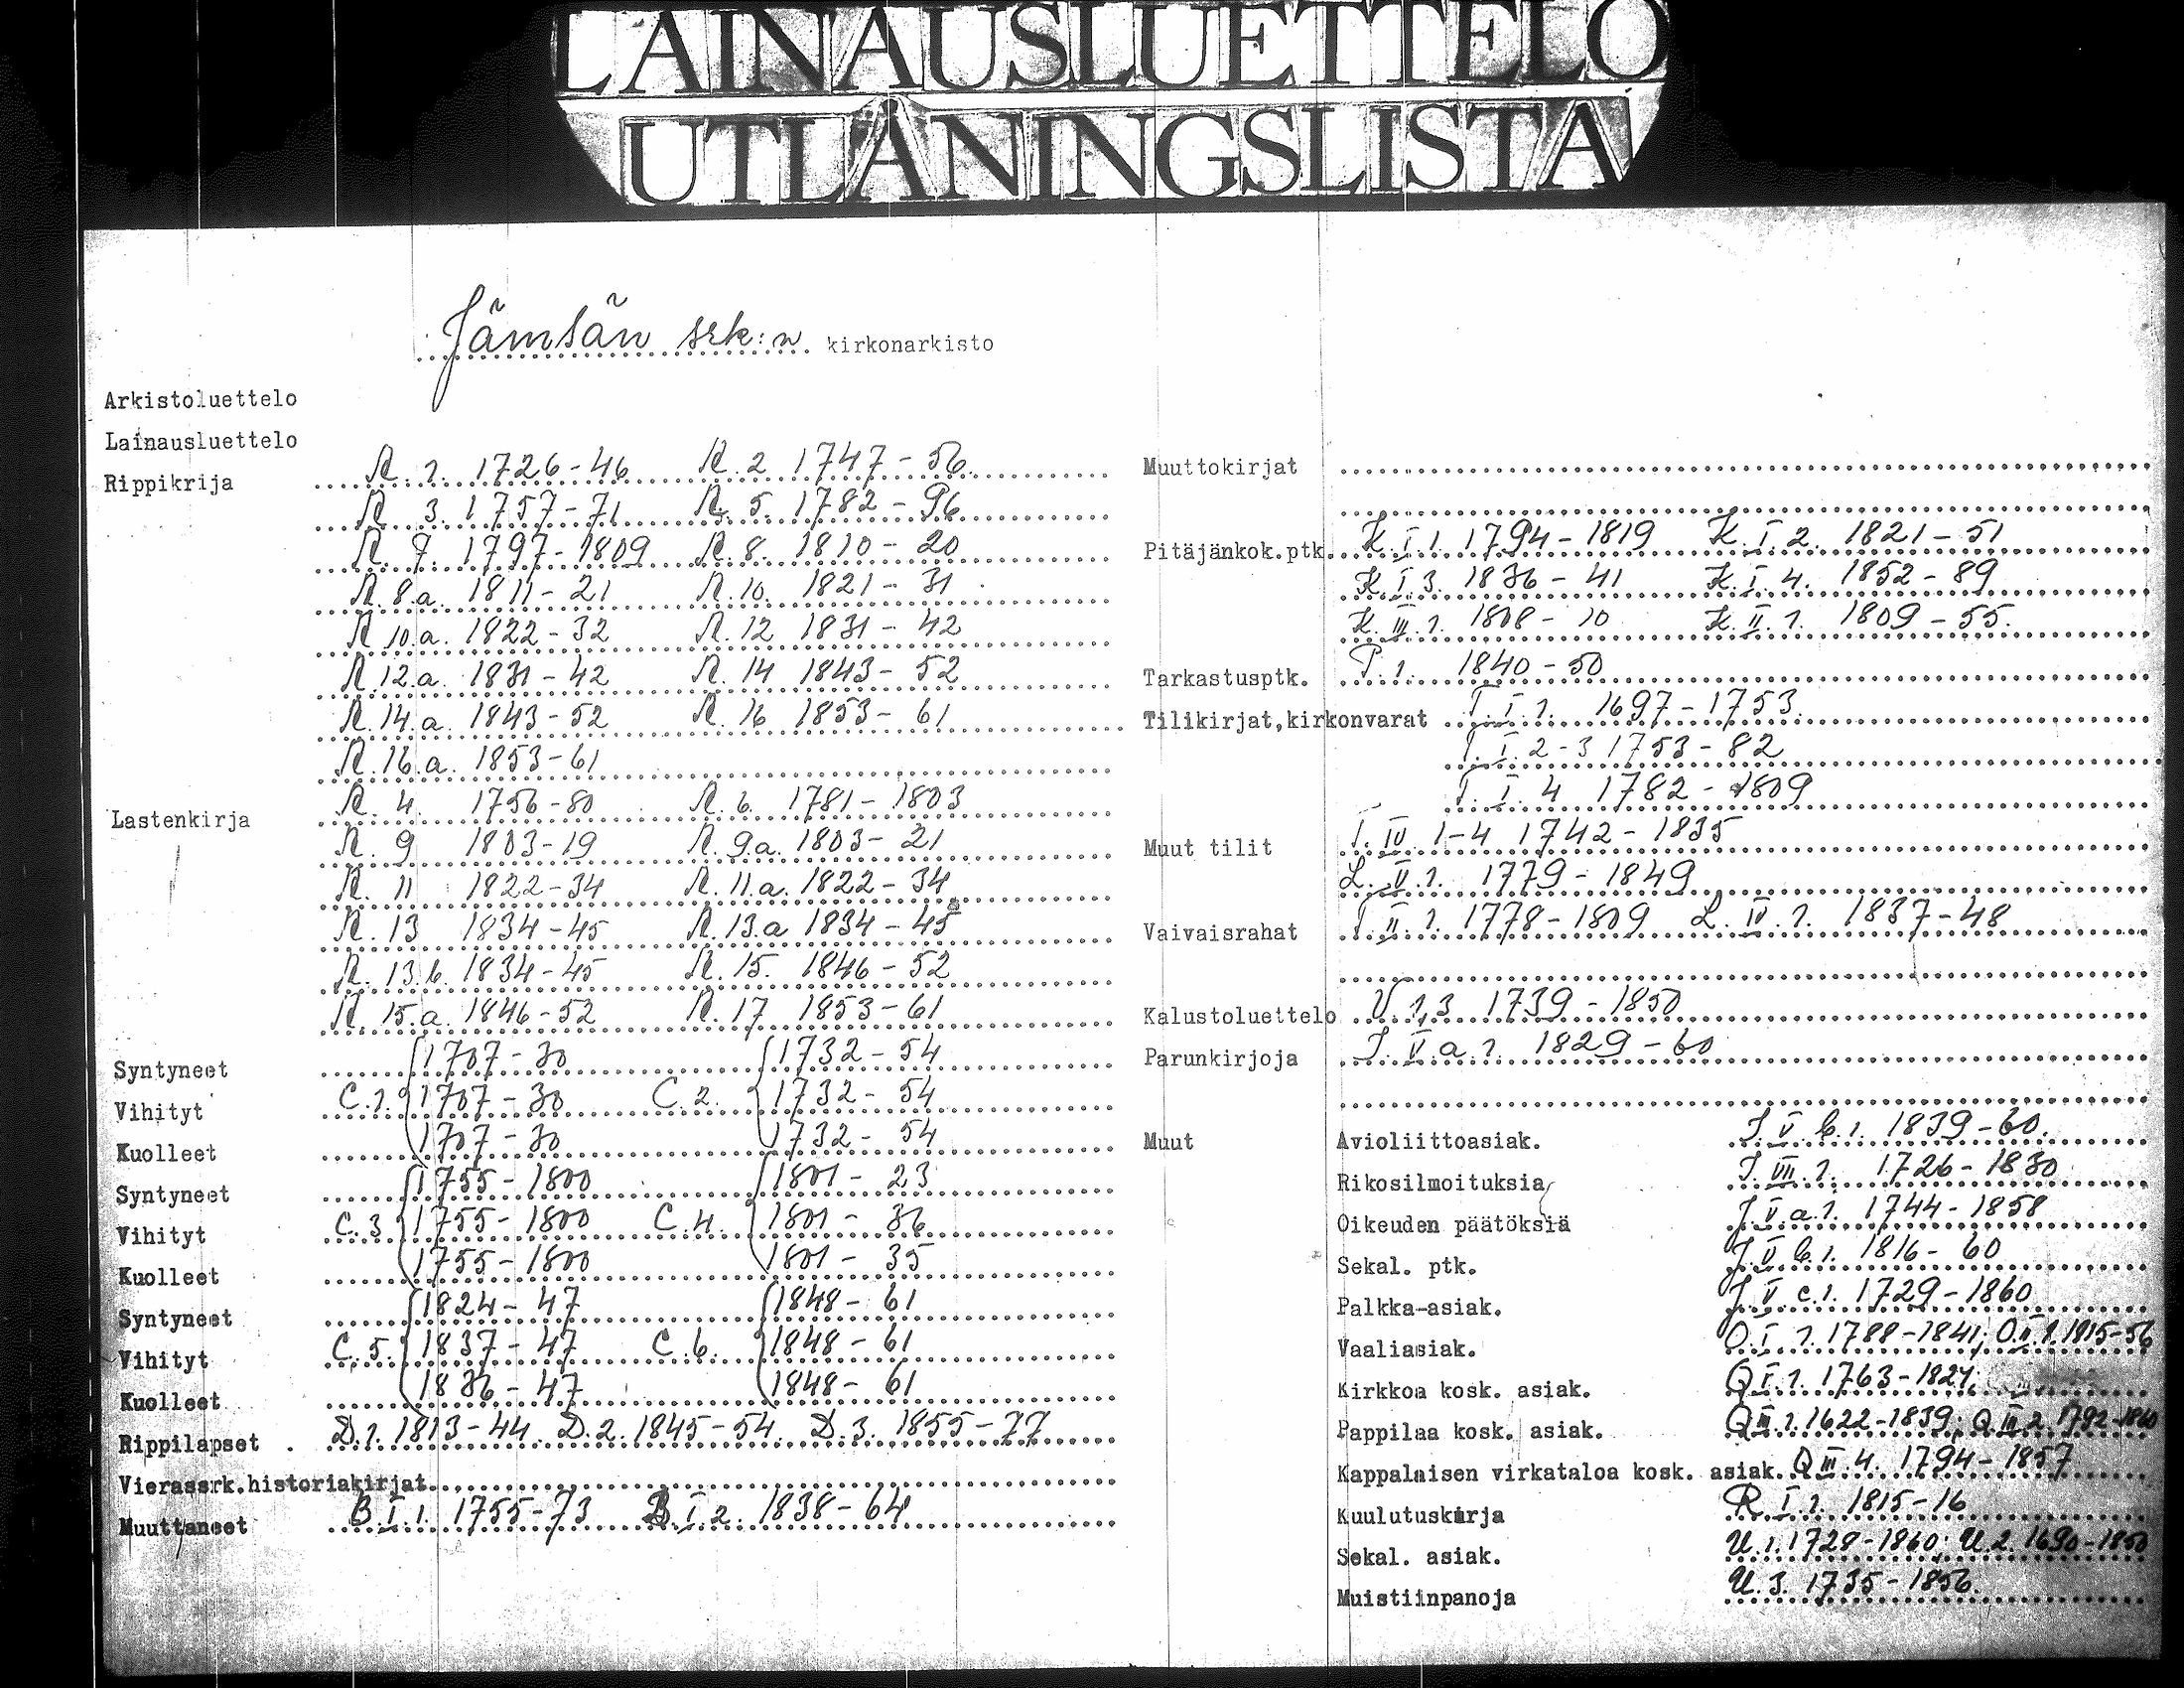 LAINAUSLUETTELO
UTLÅNINGSLISTA
Jämsän srk:n kirkonarkisto
Arkistoluettelo
Lainausluettelo
Rippikrija R. 1. 1726-46 R. 2 1747-56
R. 3. 1757-71 R. 5. 1782-96
R. 7. 1797-1809 R. 8. 1810-20
R. 8.a. 1811-21 R. 10. 1821-31
R. 10.a. 1822-32 R. 12 1831-42
R. 12.a. 1831-42 R. 14 1843-52
R. 14.a. 1843-52 R. 16 1853-61
R. 16.a. 1853-61
Lastenkirja R. 4. 1756-80 R. 6. 1781-1803
R. 9 1803-19 R. 9.a. 1803-21
R. 11 1822-34 R. 11.a. 1822-34
R. 13 1834-45 R. 13.a 1834-45
R. 13.b. 1834-45 R. 15. 1846-52
R. 15.a. 1846-52 R. 17 1853-61
Syntyneet 1707-30 1732-54
Vihityt C.1. 1707-30 C.2. 1732-54
Kuolleet 1707-30 1732-54
Syntyneet 1755-1800 1801-23
Vihityt C.3. 1755-1800 C.4. 1801-36
Kuolleet 1755-1800 1801-35
Syntyneet 1824-47 1848-61
Vihityt C.5. 1837-47 C.6. 1848-61
Kuolleet 1836-47 1848-61
Rippilapset D.1. 1813-44. D.2. 1845-54. D.3. 1855-77
Vierassrk.historiakirjat
Muuttaneet B I.1. 1755-73 B.I.2. 1838-64
Muuttokirjat
Pitäjänkok.ptk. K.I.1. 1794-1819 K.I.2. 1821-51
K.I.3. 1836-41 K.I.4. 1852-89
K.III.1. 1808-10 K.II.1. 1809-55.
Tarkastusptk. P.1. 1840-50
Tilikirjat,kirkonvarat T.I.1. 1697-1753.
T.I.2-3 1753-82
T.I.4 1782-1809
Muut tilit T.IV.1-4 1742-1835
L.V.1. 1779-1849
Vaivaisrahat T.II.1. 1778-1809 L.IV.1. 1837-48
Kalustoluettelo V.1,3. 1739-1850
Parunkirjoja J.V.a.1. 1829-60
Muut Avioliittoasiak. J.V.b.1. 1839-60.
Rikosilmoituksia J.VII.1. 1726-1830
Oikeuden päätöksiä J.V.a.1. 1744-1858
Sekal. ptk. J.V.b.1. 1816-60
Palkka-asiak. J.V.c.1. 1729-1860
Vaaliasiak. O.I.1. 1788-1841; O.II.1. 1815-56
Kirkkoa kosk. asiak. Q I.1. 1763-1824;
Pappilaa kosk. asiak. Q III.1. 1622-1839; Q.III.2. 1792-1860
Kappalaisen virkataloa kosk. asiak. Q III.4. 1794-1857
Kuulutuskirja R I.1. 1815-16
Sekal. asiak. U.1. 1728-1860; U.2. 1690-1850
Muistiinpanoja U.3. 1735-1856.